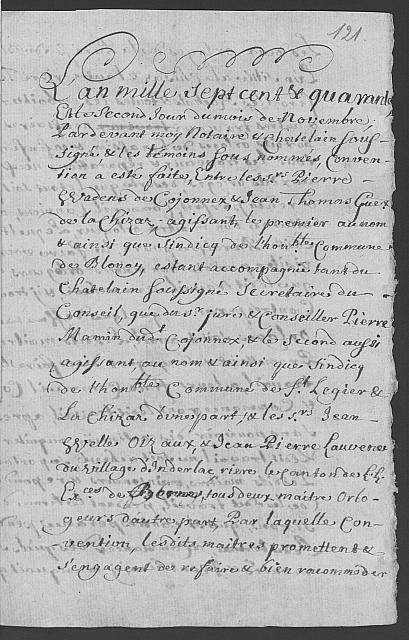 121.
L'an mille Sept cent & quarante
Et le Second Jour du mois de Novembre.
Pardevant moy Notaire & Chatelain Sous-
signé & les témoins Sous nommés, Conven-
tion a esté faite, Entre les Srs Pierre
de Cojonnex, & Jean Thomas Cuex
de la Chizaz, agissant, le premier au nom
& ainsi que Sindicq de l'honble Commune
de Blonay, estant accompagné tant du
Chatelain Soussigné Secretaire du
Conseil, que du Sr juré & Conseiller Pierre
Mamin dudt Cojonnex & le Second aussi
agissant, au nom & ainsi que Sindicq
de l'honble Commune de St Legier &
La Chizaz d'une part, & les Srs Jean
& Jean Pierre
du Village d'Inderlac riere le Canton de
Exces de tous deux maitre Orlo-
geurs d'autre part, Par laquelle Con-
vention, lesdits maitres promettent &
S'engagent de refaire & bien racommoder